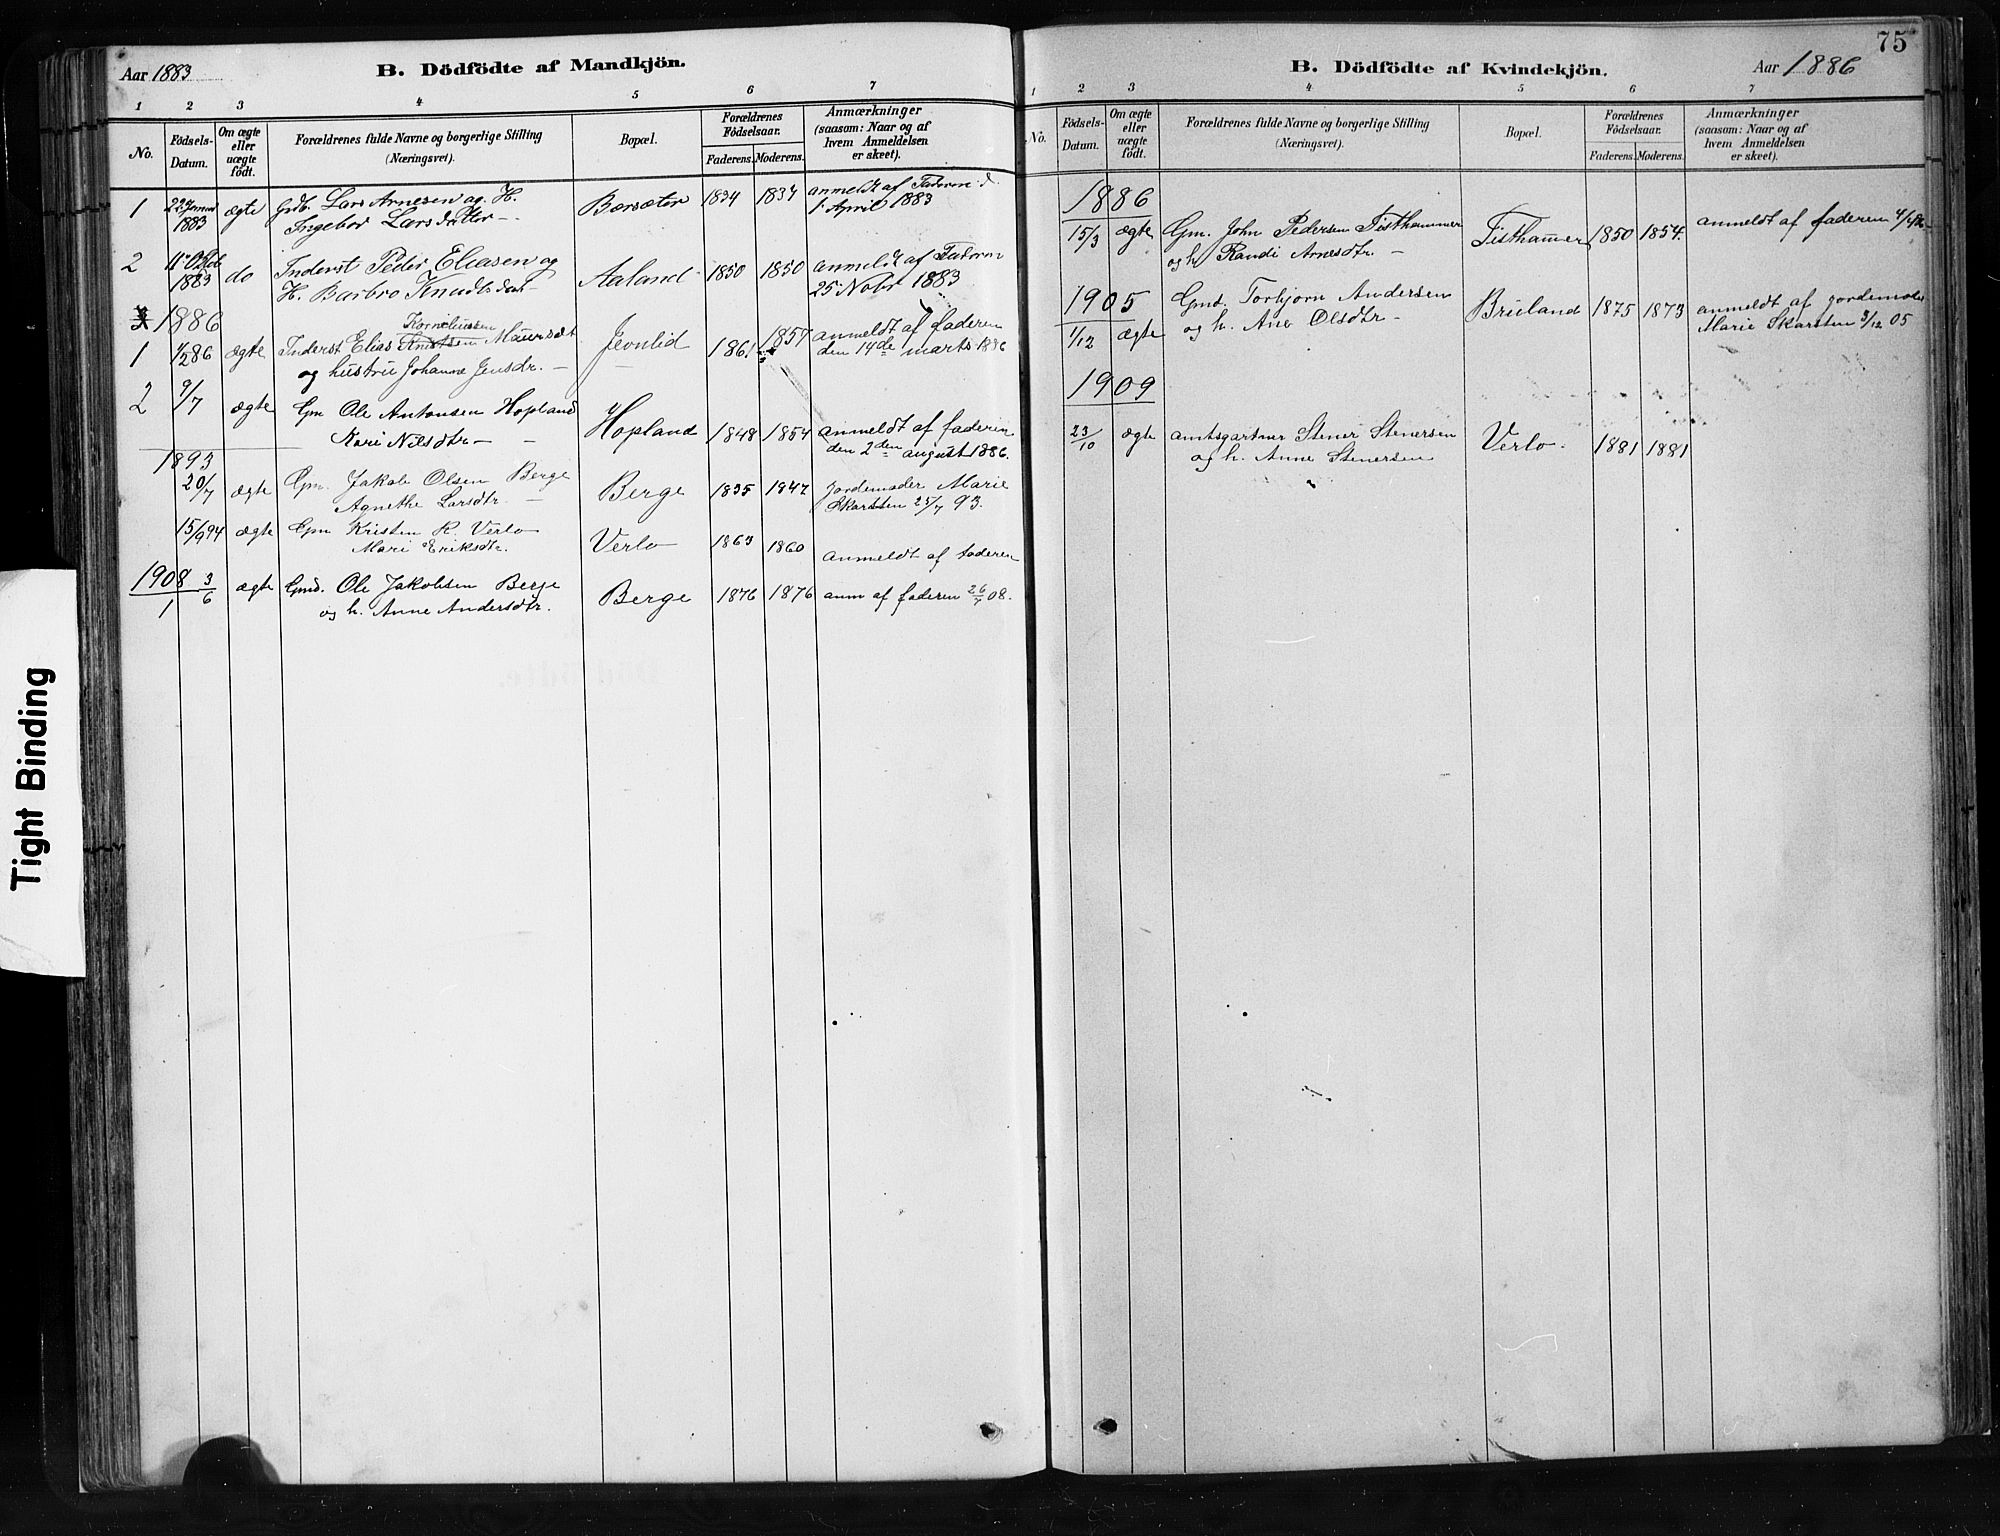 Aar 1883
B. Dödfödte af Mandkjön.
1 2 3 4 5 6 7
No.
Födsels-Datum.
Om ægte eller uægte födt.
Forældrenes fulde Navne og borgerlige Stilling
(Næringsvei).
Bopæl.
Forældrenes Födselsaar.
Faderens. Moderens.
Anmærkninger
(saasom: Naar og af
hvem Anmeldelsen
er skeet).
1 22 1883 ægte Lars Arnesen og H. Bærsæter 1834 1837 anmeldt af
Ingebor Larsdatter - 1 April 1883
2 11te 1883 do Inderst Peder Eliasen og Aaland 1850 1850 anmeldt af
H. Barbro Knuds 25 Nobr 1883
1886
Korneliussen
1 1/2 86 ægte Inderst Elias Maurset Jevnlid 1861 1857 anmeldt af faderen
og hustru Johanne Jensdr. - den 14de marts 1886
2 9/7 ægte Gm Ole Antonsen Hopland Hopland 1848 1854 anmeldt af faderen
Kari Nilsdtr - den 2den august 1886.
1893
20/7 ægte Gm. Jakob Olsen Berge Berge 1835 1847 Jordemoder Marie
Agnethe Larsdtr. - Skarsten 25/7 93.
15/9 94 ægte Gm Kristen R. Verlo Verlo 1863 1860 anmeldt af faderen
Mari Eriksdtr.
1908
1 3/6 ægte Gmd. Ole Jakobsen Berge Berge 1876 1876 anm af faderen 26/7 08.
og h. Anne Andersdtr.
75
B. Dödfödte af Kvindekjön.
Aar 1886
1 2 3 4 5 6 7
No.
Födsels-Datum.
Om ægte eller uægte födt.
Forældrenes fulde Navne og borgerlige Stilling
(Næringsvei).
Bopæl.
Forældrenes Födselsaar.
Faderens. Moderens.
Anmærkninger
(saasom: Naar og af
hvem Anmeldelsen
er skeet).
1886
15/3 ægte Gm. John Pedersen Tisthammer Tisthamer 1850 1854. anmeldt af faderen
og h. Randi Arnesdtr. -
1905
1/12 ægte Gmd. Torbjørn Andersen Brieland 1875 1873 anmeldt af jordemoder
og h. Ane Olsdtr - Marie Skarsten 3/12 05
1909
23/10 ægte amtsgartner Stener Stenersen Verlo. 1881 1881
og h. Anne Stenersen
Tight Binding